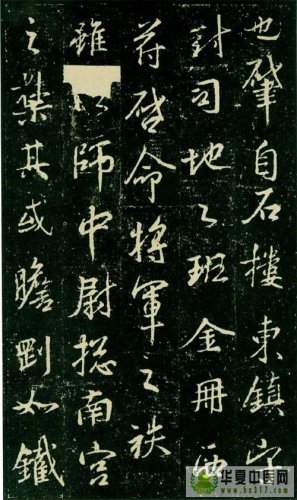 也肇自石樓東鎮守
封司地之班金冊西
苻啓命將軍之袟
雖以師中尉揔南宮
之藥其或瞻劉如鐵
华夏中医网
www.hx317.com